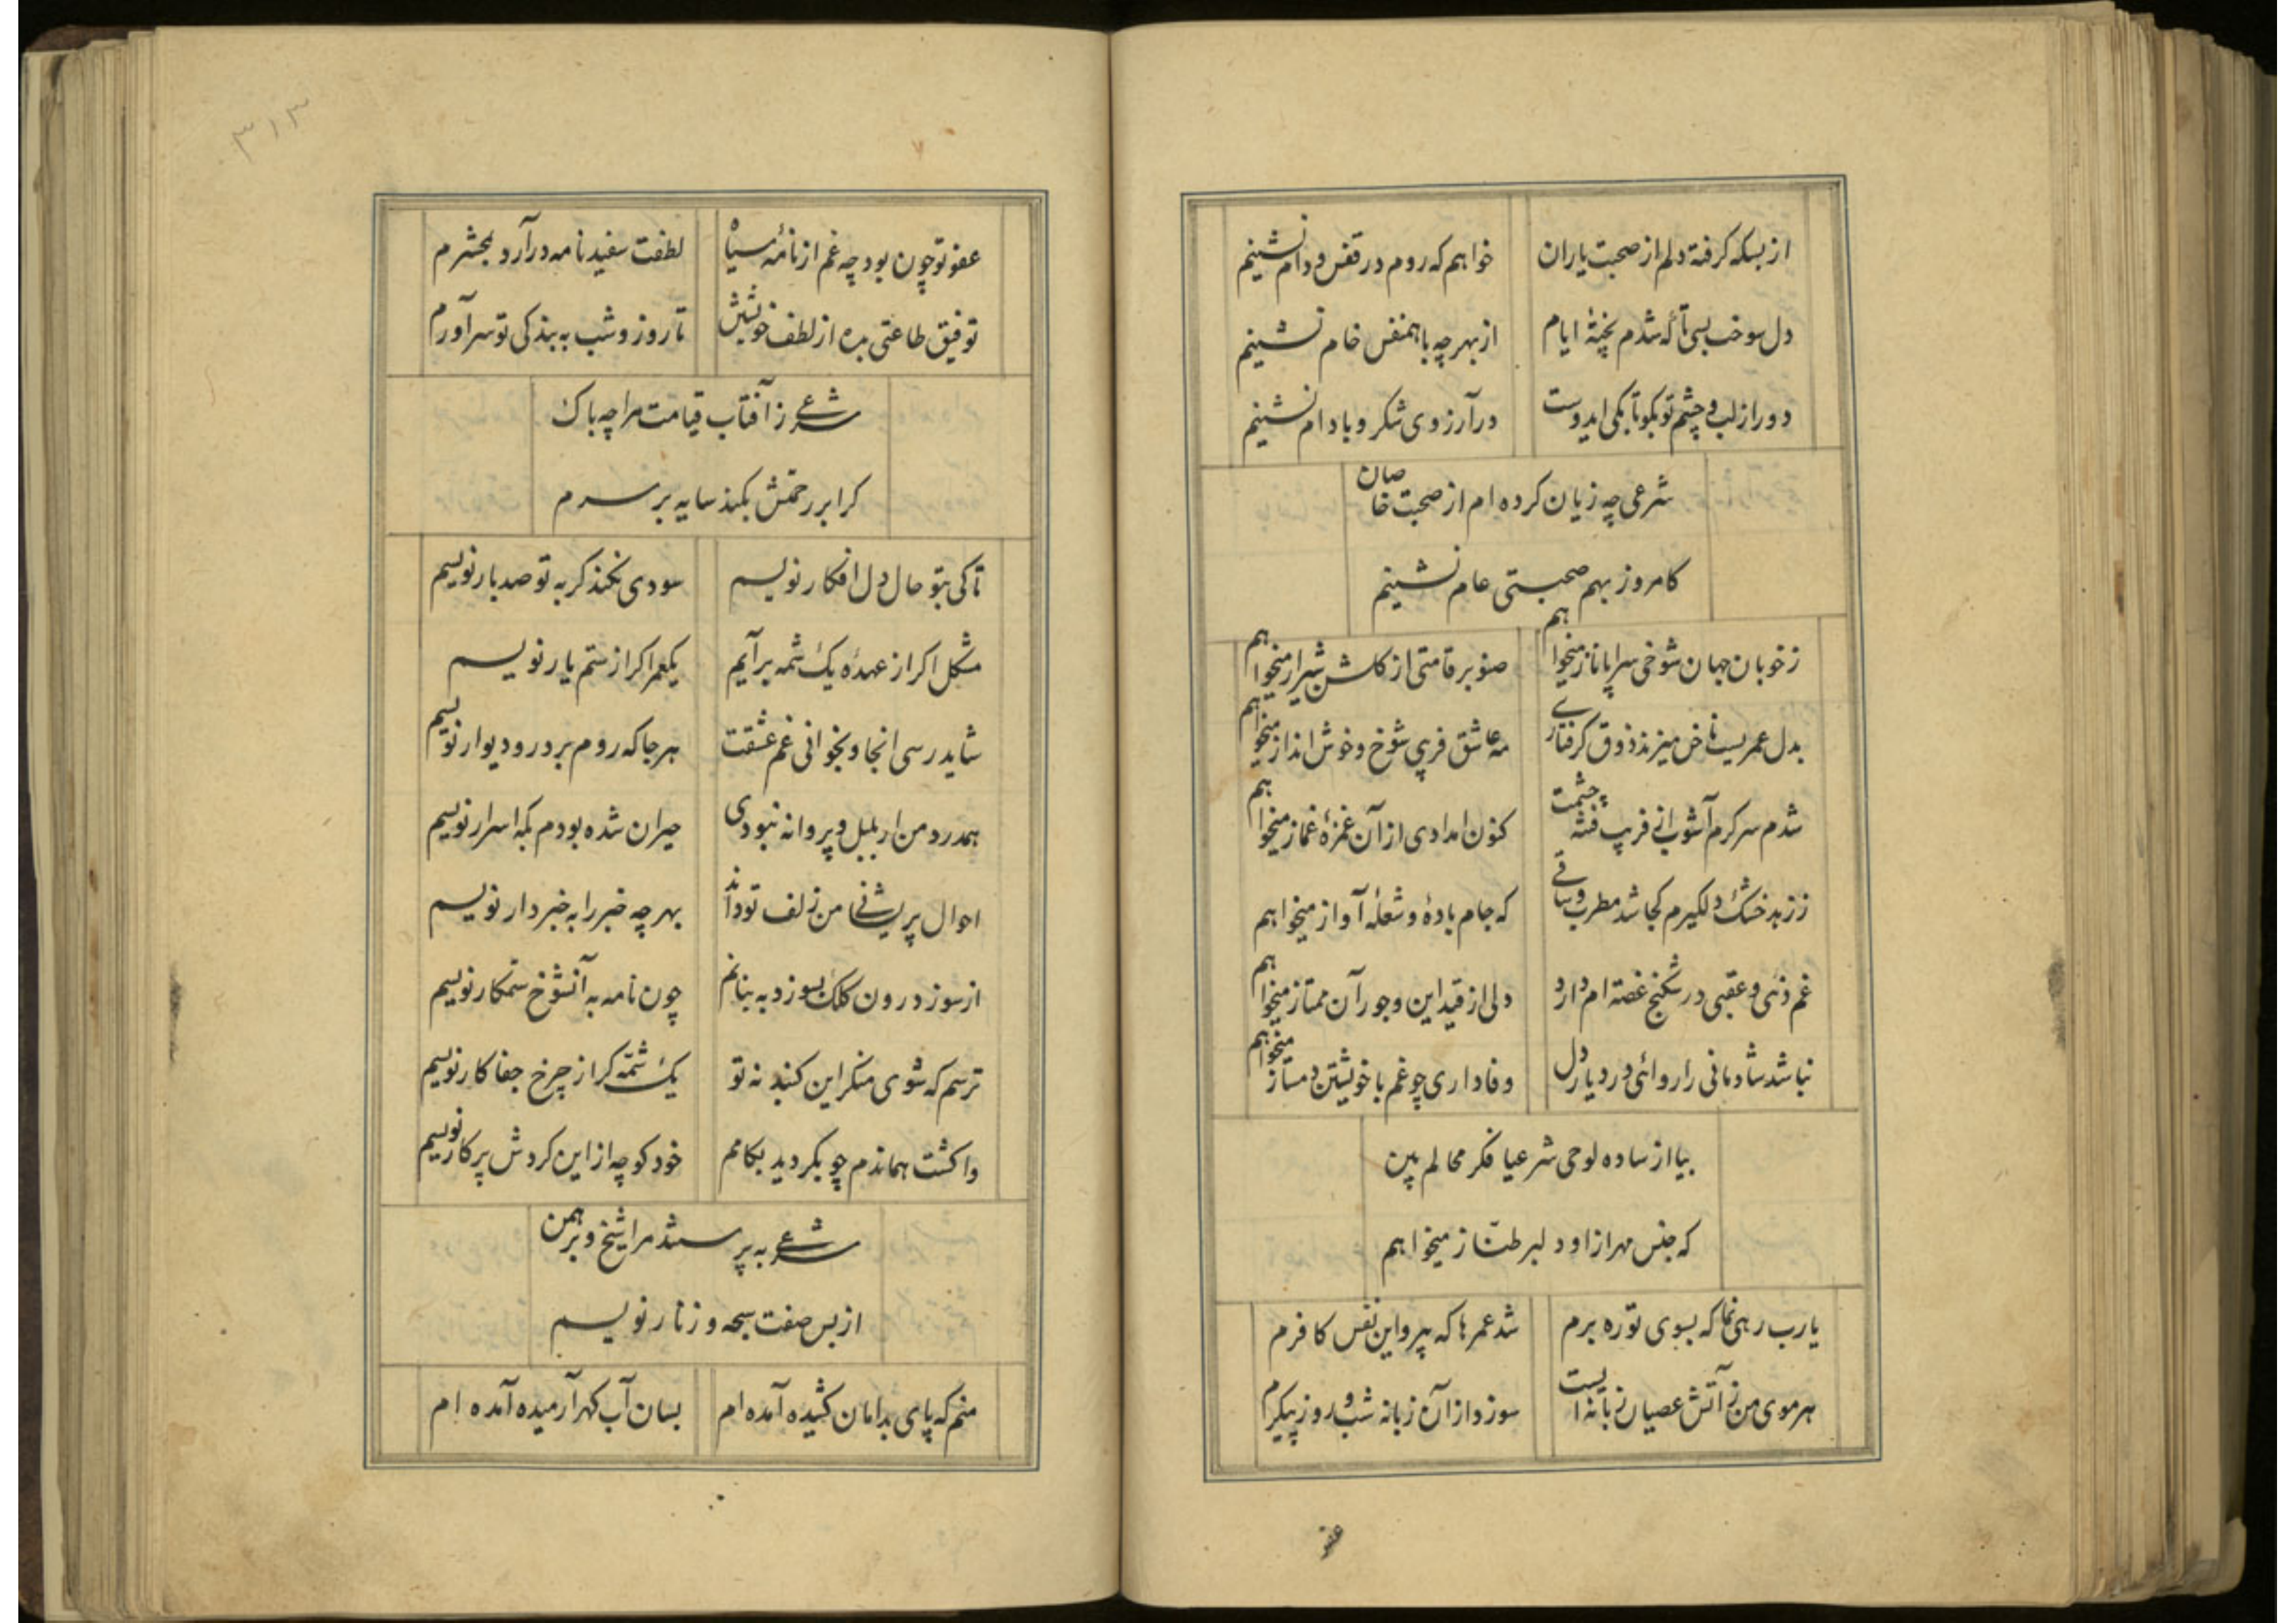 از بسکه کرفته دلم از صحبت یاران خواهم که روم در قفس و دام نشینم
دل سوخت بسی تا که شدم پختهٔ ایام از بهر چه با همنفس خام نشینم
دور از لب و چشم تو بکو تا بکی ایدوست در آرزوی شکر و بادام نشینم
شرعی چه زیان کرده ام از صحبت خاصان
کامروز بهم صحبتی عام نشینم
ز خوبان جهان شوخی سراپا ناز میخواهم صنوبر قامتی از کلشن شیراز میخواهم
بدل عمریست ناخن میزند ذوق کرفتاری مه عاشق فریبی شوخ و خوش انداز میخواهم
شدم سرکرم آشوب از فریب فتنهٔ چشمت کنون امدادی از آن غمزهٔ غماز میخواهم
ز زهد خشک دلکیرم کجا شد مطرب و ساقی که جام باده و شعلهٔ آواز میخواهم
غم دنیی و عقبی در شکنج غصه ام دارد دلی از قید این و جور آن ممتاز میخواهم
نباشد شادمانی را روائی در دیار دل وفاداری چو غم با خویشتن دمساز میخواهم
بیا از ساده لوحی شرعیا فکر محالم بین
که جنس مهر از او دلبر طناز میخواهم
یا رب رهی نما که بسوی تو ره برم شد عمرها که پیرو این نفس کافرم
هر موی من ز آتش عصیان زبانه ایست سوزد از آن زبانه شب و روز پیکرم
عفو
۳۱۳
عفو تو چون بود چه غم از نامهٔ سیاه لطفت سفید نامه درآرد بمحشرم
توفیق طاعتی بده از لطف خویشتن تا روز و شب به بندکی تو سر آورم
شرعی ز آفتاب قیامت مرا چه باک
کر ابر رحمتش بکند سایه بر سرم
تا کی بتو حال دل افکار نویسم سودی نکند کر به تو صد بار نویسم
مشکل اکر از عهدهٔ یک شمه برآیم یکعمر اکر از ستم یار نویسم
شاید رسی انجا و بخوانی غم عشقت هر جا که روم بر در و دیوار نویسم
همدرد من ار بلبل و پروانه نبودی حیران شده بودم بکه اسرار نویسم
احوال پریشانی من زلف تو داند بهر چه خبر را به خبردار نویسم
از سوز درون کلک بسوزد به بنانم چون نامه به آنشوخ ستمکار نویسم
ترسم که شوی منکر این کنبد نه تو یک شمّه کر از چرخ جفاکار نویسم
واکشت هماندم چو بکردید بکامم خود کو چه از این کردش پرکار نویسم
شرعی به پرستند مرا شیخ و برهمن
از بس صفت سبحه و زنار نویسم
منم که پای بدامان کشیده آمده ام بسان آب کهر آرمیده آمده ام